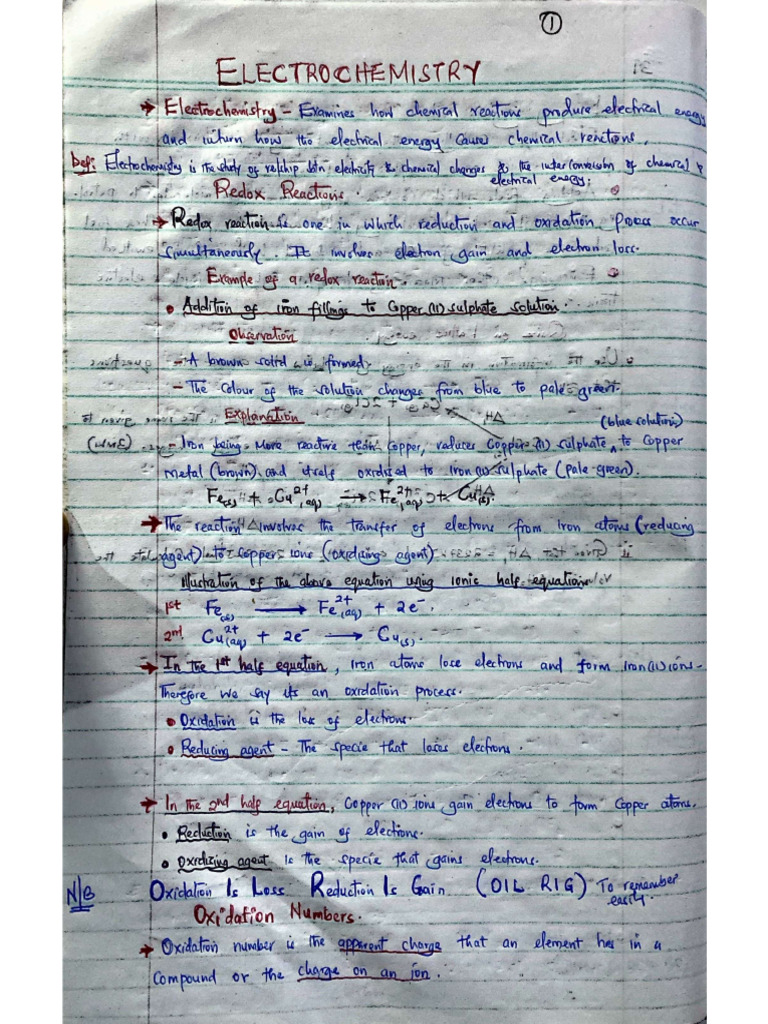 1
ELECTROCHEMISTRY
→ Electrochemistry - Examines how chemical reactions produce electrical energy
and inturn how the electrical energy causes chemical reactions.
Def: Electrochemistry is the study of relship btn electricity & chemical changes & the interconversion of chemical &
electrical energy;
Redox Reactions.
→ Redox reaction is one in which reduction and oxidation process occur
simultaneously. It involves electron gain and electron loss.
Example of a redox reaction.
• Addition of iron fillings to Copper (II) sulphate solution.
Observation
- A brown solid is formed.
- The colour of the solution changes from blue to pale green.
Explanation
(blue solution)
- Iron being more reactive than copper, reduces Copper (II) sulphate ^ to Copper
metal (brown) and itself oxidised to Iron (II) sulphate (pale green).
Fe(s) + Cu²⁺(aq) → Fe²⁺(aq) + Cu(s).
→ The reaction involves the transfer of electrons from Iron atoms (reducing
agent) to coppers ions (oxidizing agent)
Illustration of the above equation using ionic half equation
1st Fe(s) → Fe²⁺(aq) + 2e⁻.
2nd Cu²⁺(aq) + 2e⁻ → Cu(s).
→ In the 1st half equation, Iron atoms lose electrons and form Iron (II) ions.
Therefore we say its an oxidation process.
• Oxidation is the loss of electrons.
• Reducing agent - The specie that loses electrons.
→ In the 2nd half equation, Copper (II) ions gain electrons to form Copper atoms.
• Reduction is the gain of electrons.
• Oxidizing agent is the specie that gains electrons.
N/B Oxidation Is Loss Reduction Is Gain (OIL RIG) To remember
easily.
Oxidation Numbers.
→ Oxidation number is the apparent charge that an element has in a
compound or the charge on an ion.